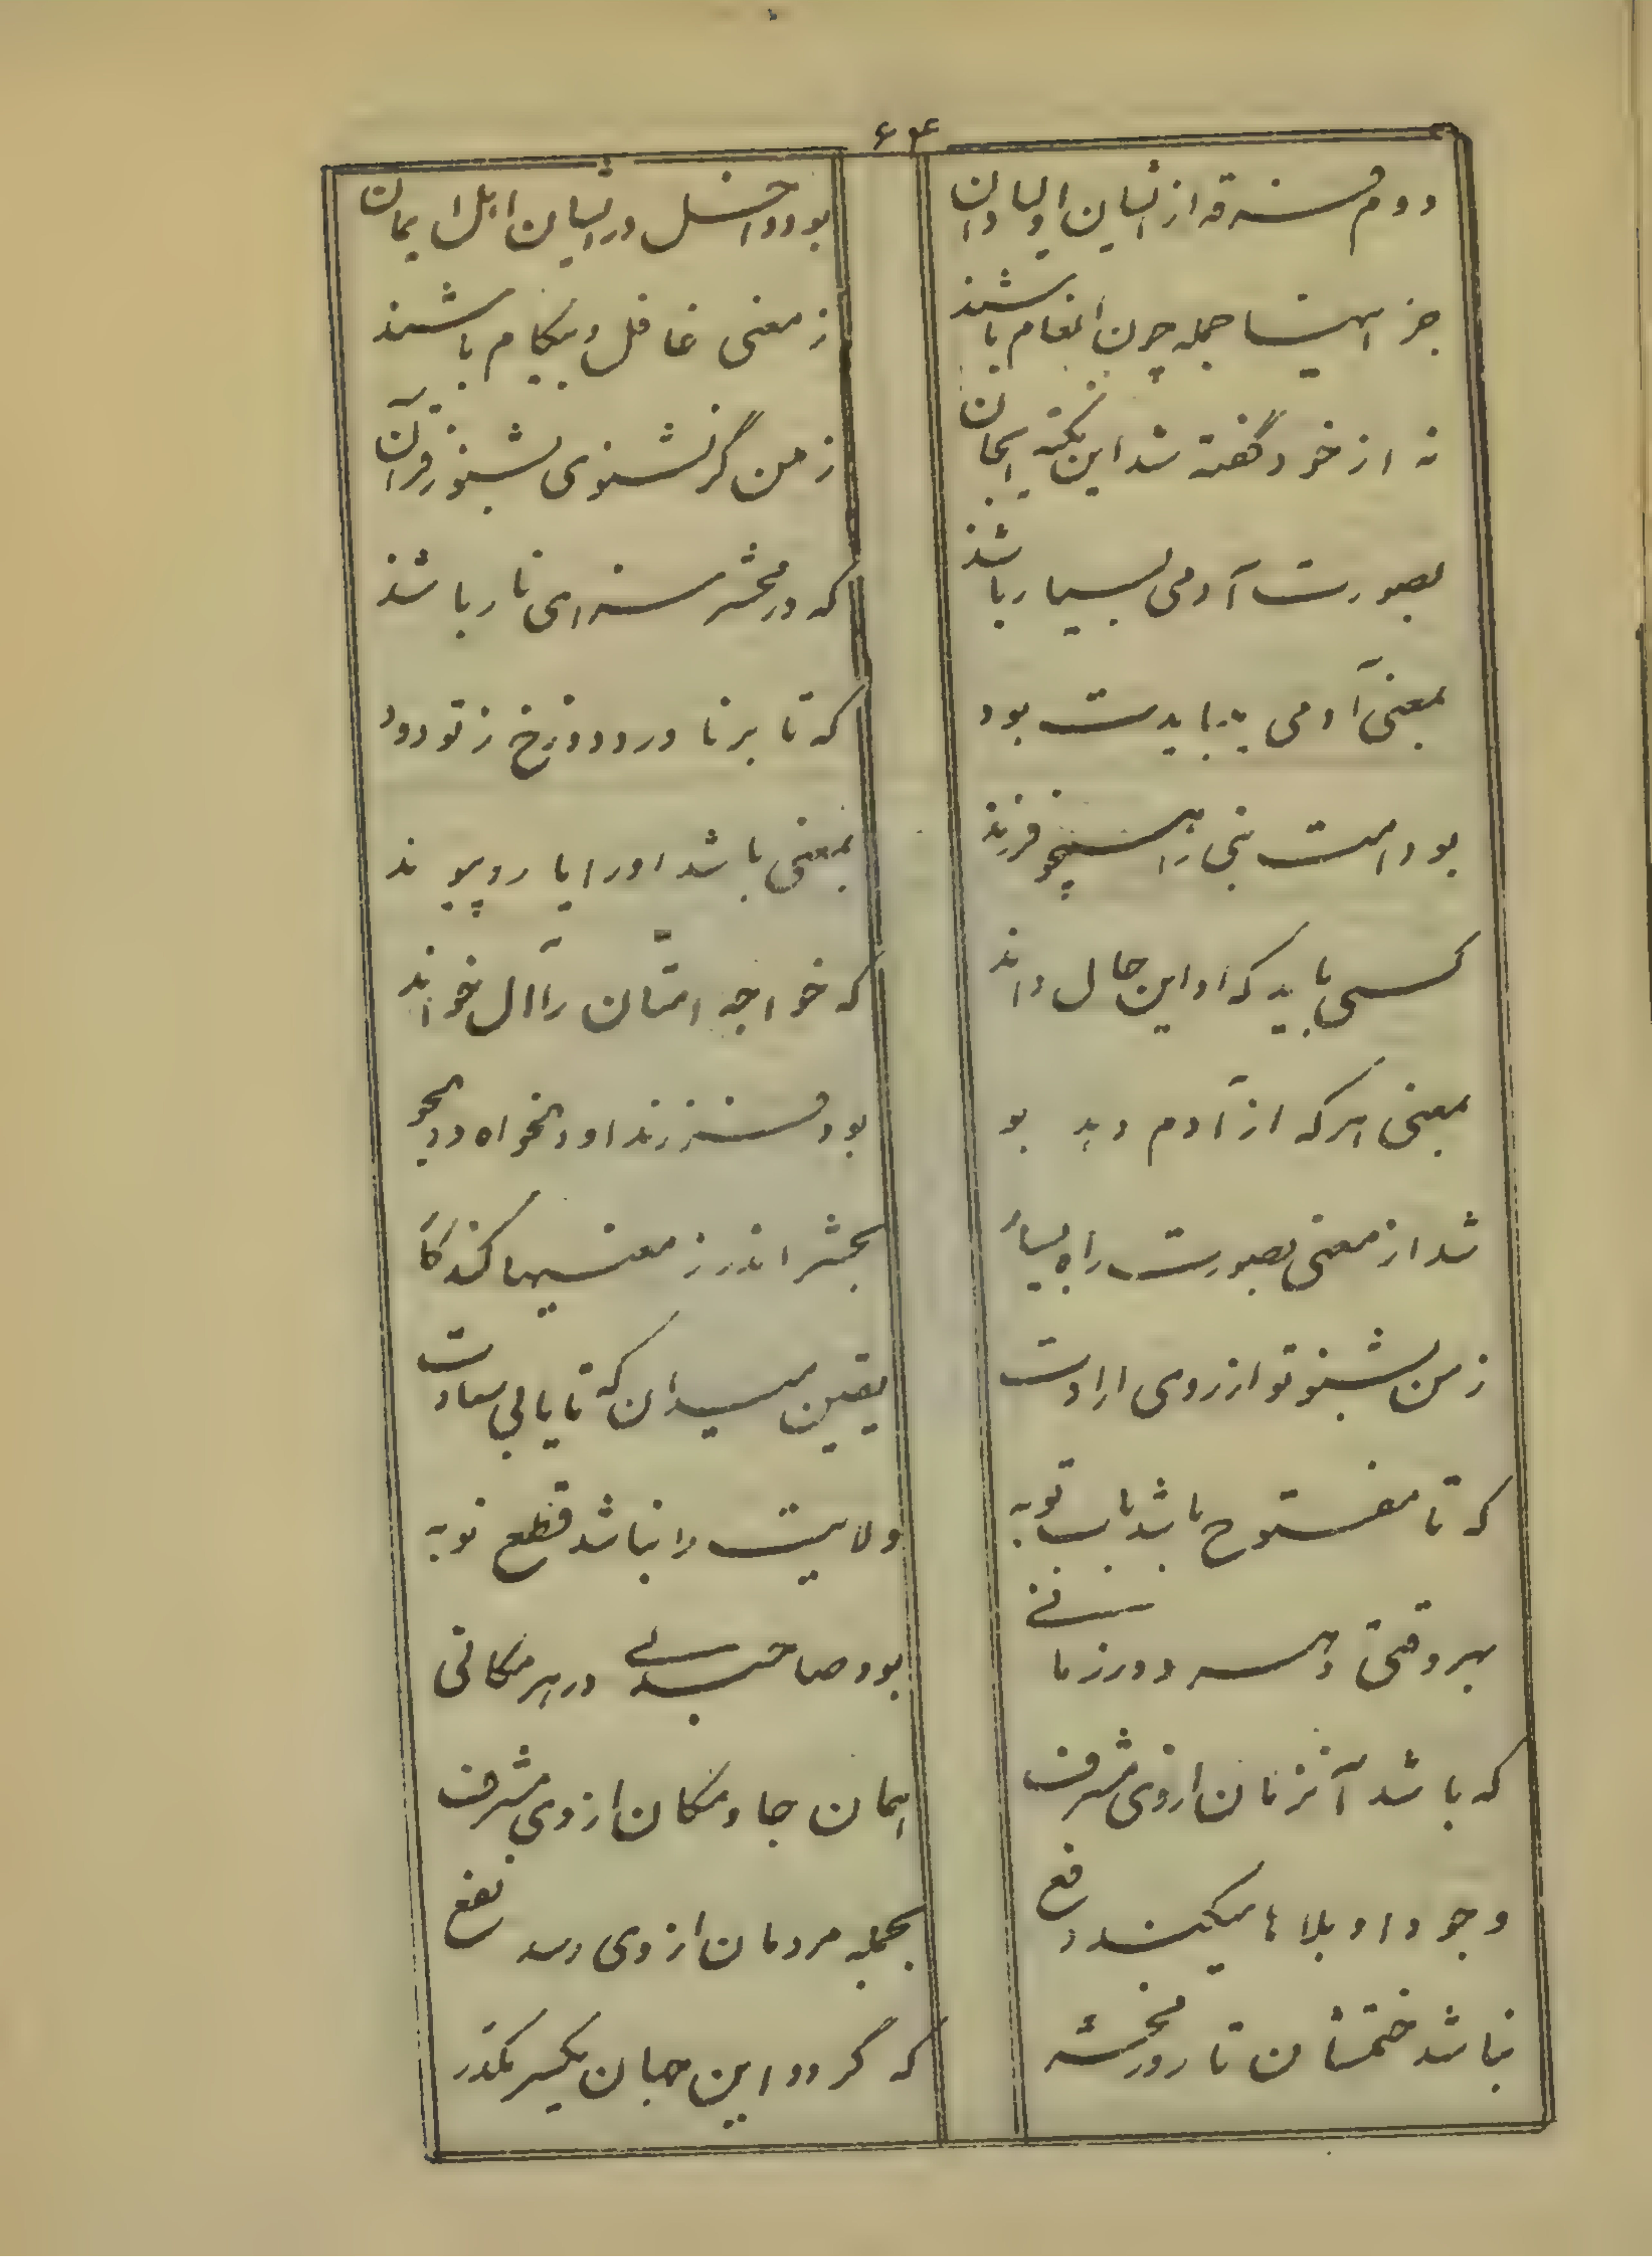 ۶۴
دوم فرقه از ایشان اولیا دان
بود داخل در ایشان اهل ایمان
جز اینها جمله چون انعام باشند
ز معنی غافل و بیکام باشند
نه از خود گفته شد این نکته ایجان
ز من گر نشنوی بشنو ز قرآن
بصورت آدمی بسیار باشد
که در محشر سزای نار باشد
بمعنی آدمی میبایدت بود
که تا برناورد دوزخ ز تو دود
بود امت نبی را همچو فرزند
بمعنی باشد او را یار و پیوند
کسی باید که او این حال داند
که خواجه امتان را آل خواند
بمعنی هر که از آدم دهد بو
بود فرزند او دلخواه و دلجو
شد از معنی بصورت راه بسیا
بحشر اندر ز معنیها کند کا
ز من بشنو تو از روی ارادت
یقین میدان که تا یابی سعادت
که تا مفتوح باشد باب توبه
ولایت را نباشد قطع نوبه
بهر وقتی و هر دور زمانی
بود صاحبدلی در هر مکانی
که باشد آنزمان از وی مشرف
همان جا و مکان از وی مشرف
وجود او بلاها میکند دفع
بجمله مردمان از وی رسد نفع
نباشد ختمشان تا روز محشر
که گردد این جهان یکسر مکدر